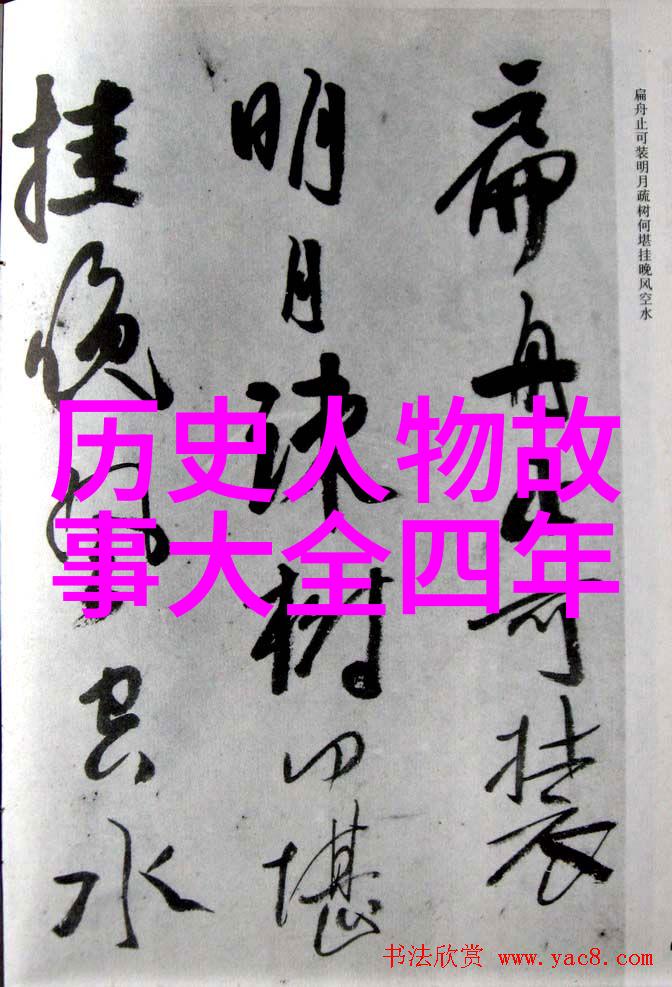 扁舟止可装
明月疏树何堪
挂晚风空水
扁舟止可装明月疏树何堪挂晚风空水
历史人物故
事大全四年
书法欣赏 www.yac8.com